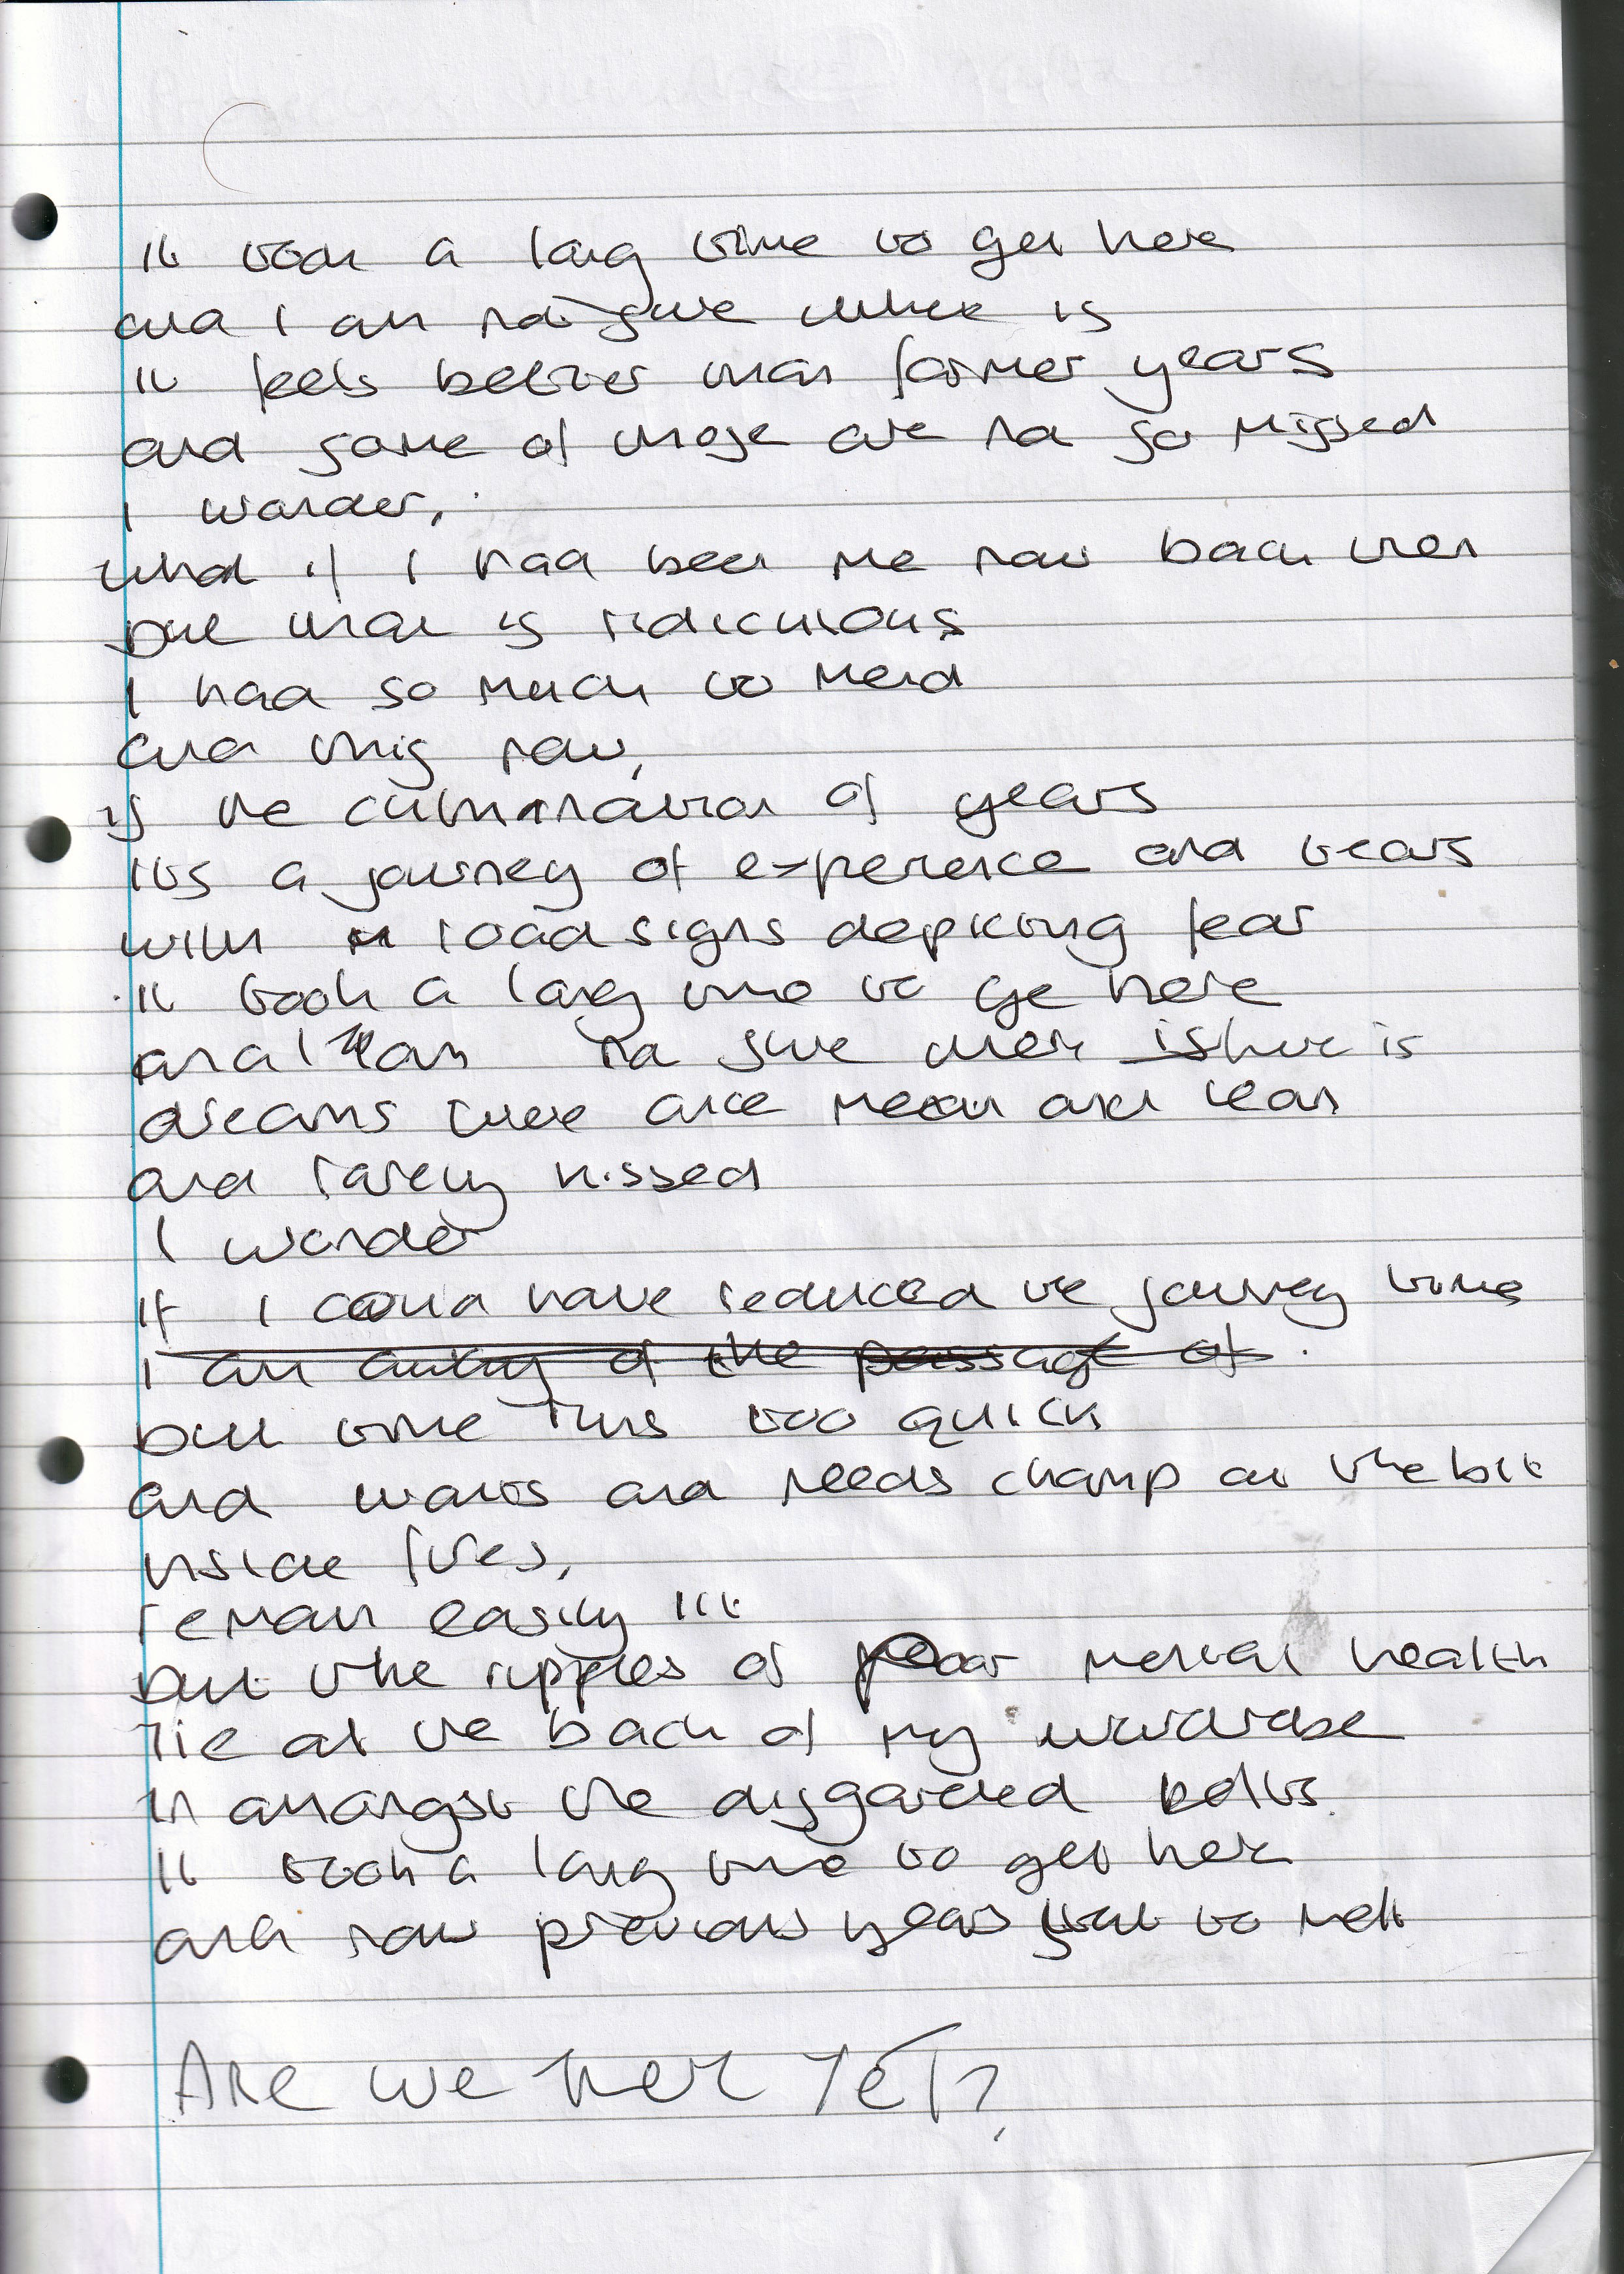 It took a long time to get here
and I am not sure where is
it feels better than former years
and some of those are not so missed
I wonder,
what if I had been me now back then
but that is ridiculous
I had so much to mend
and this now,
is the culmination of years
its a journey of experience and tears
with road signs depicting fear
it took a long time to ge here
and I am not sure where is here is
dreams there are mean and lean
and rarely kissed
I wonder
If I could have reduced the journey time
I am of the passage of
but time runs too quick
and wants and needs champ at the bit
inside fires,
remain easily lit
but the ripples of poor mental health
lie at the back of my wardrobe
in amongst the disgarded belts.
It took a long time to get here
and now previous years start to melt
Are we here Yet?